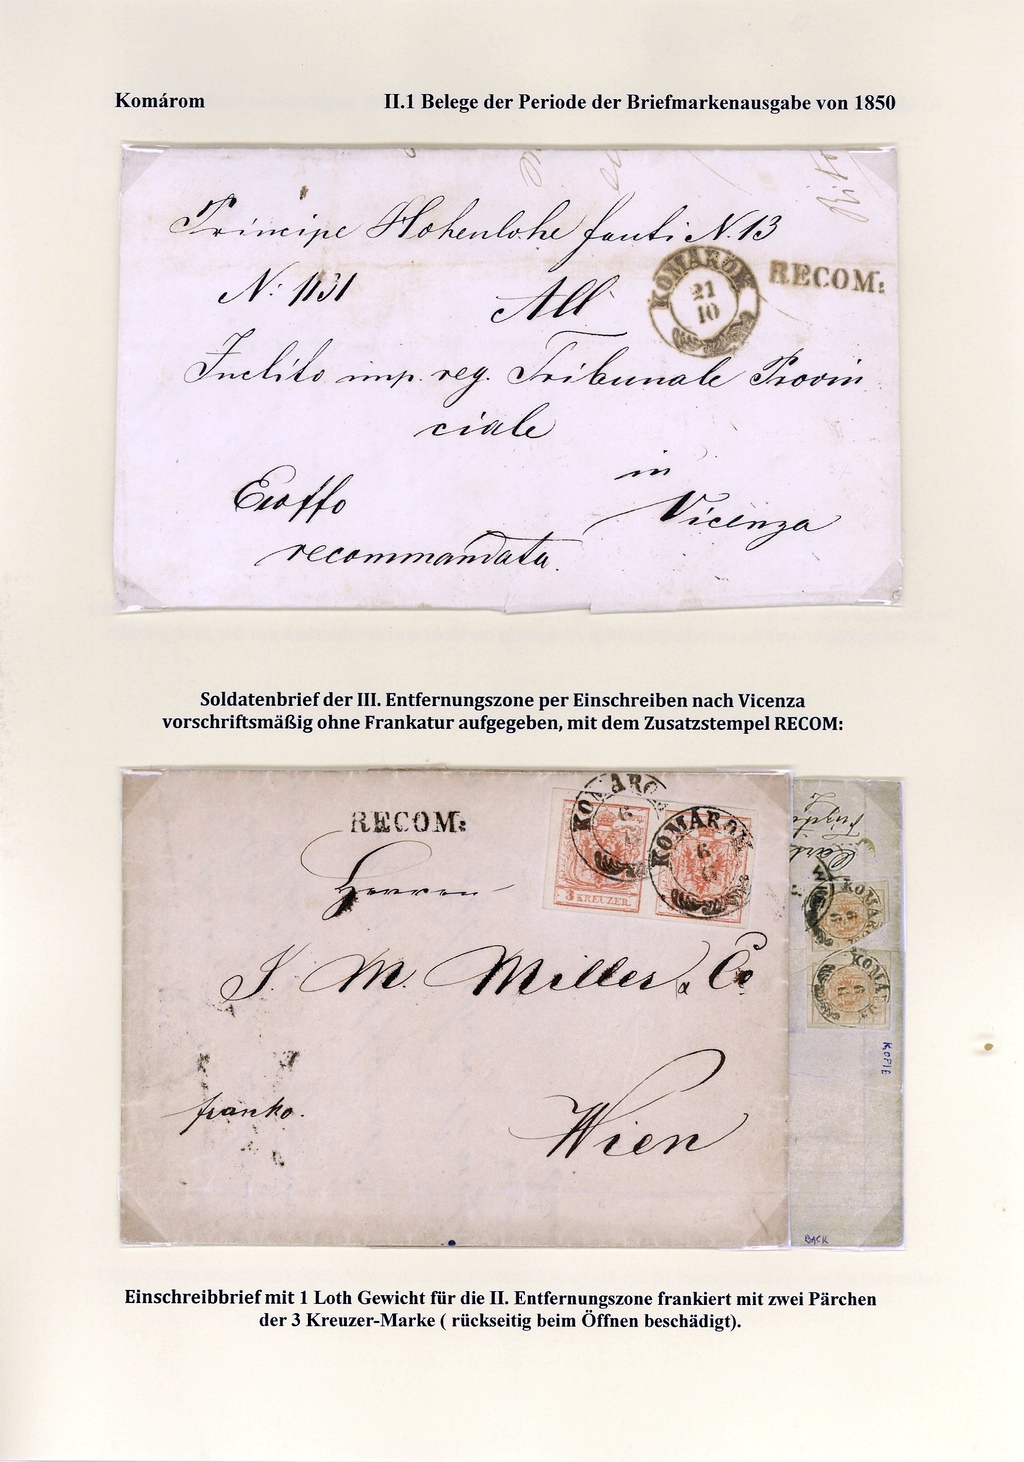 Komárom II.1 Belege der Periode der Briefmarkenausgabe von 1850
Principe Hohenlohe fanti N. 13
KOMÁROM
21
10
RECOM:
N: 1131
All
Inclito imp. reg. Tribunale Provin
ciale
in
Exoffo
Vicenza
recommandata.
Soldatenbrief der III. Entfernungszone per Einschreiben nach Vicenza
vorschriftsmäßig ohne Frankatur aufgegeben, mit dem Zusatzstempel RECOM:
RECOM:
KOMÁRO
6
KOMÁROM
6
3 KREUZER.
Herren
J. M. Miller & Co
KOMÁROM
6
KOMÁ
6
KOPIE
franko.
Wien
BACK
Einschreibbrief mit 1 Loth Gewicht für die II. Entfernungszone frankiert mit zwei Pärchen
der 3 Kreuzer-Marke ( rückseitig beim Öffnen beschädigt).